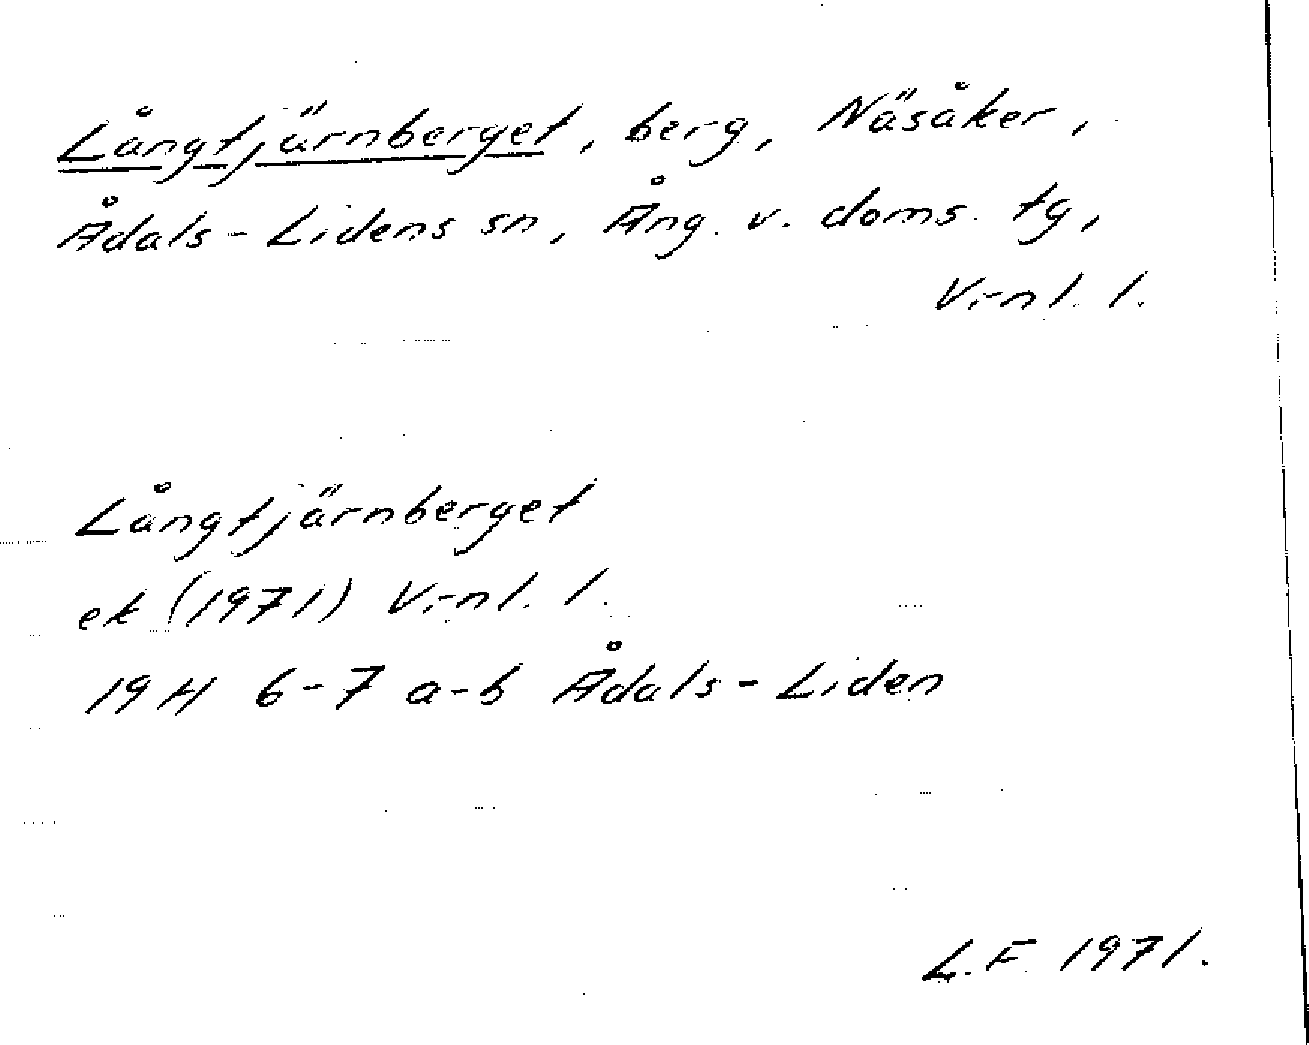 Långtjärnberget, berg, Näsåker,
Ådals-Lidens sn, Ång. v. doms. tg,
V:nl. l.
Långtjärnberget
ek (1971) V:nl. l.
19 H 6-7 a-b Ådals-Liden
L.F. 1971.